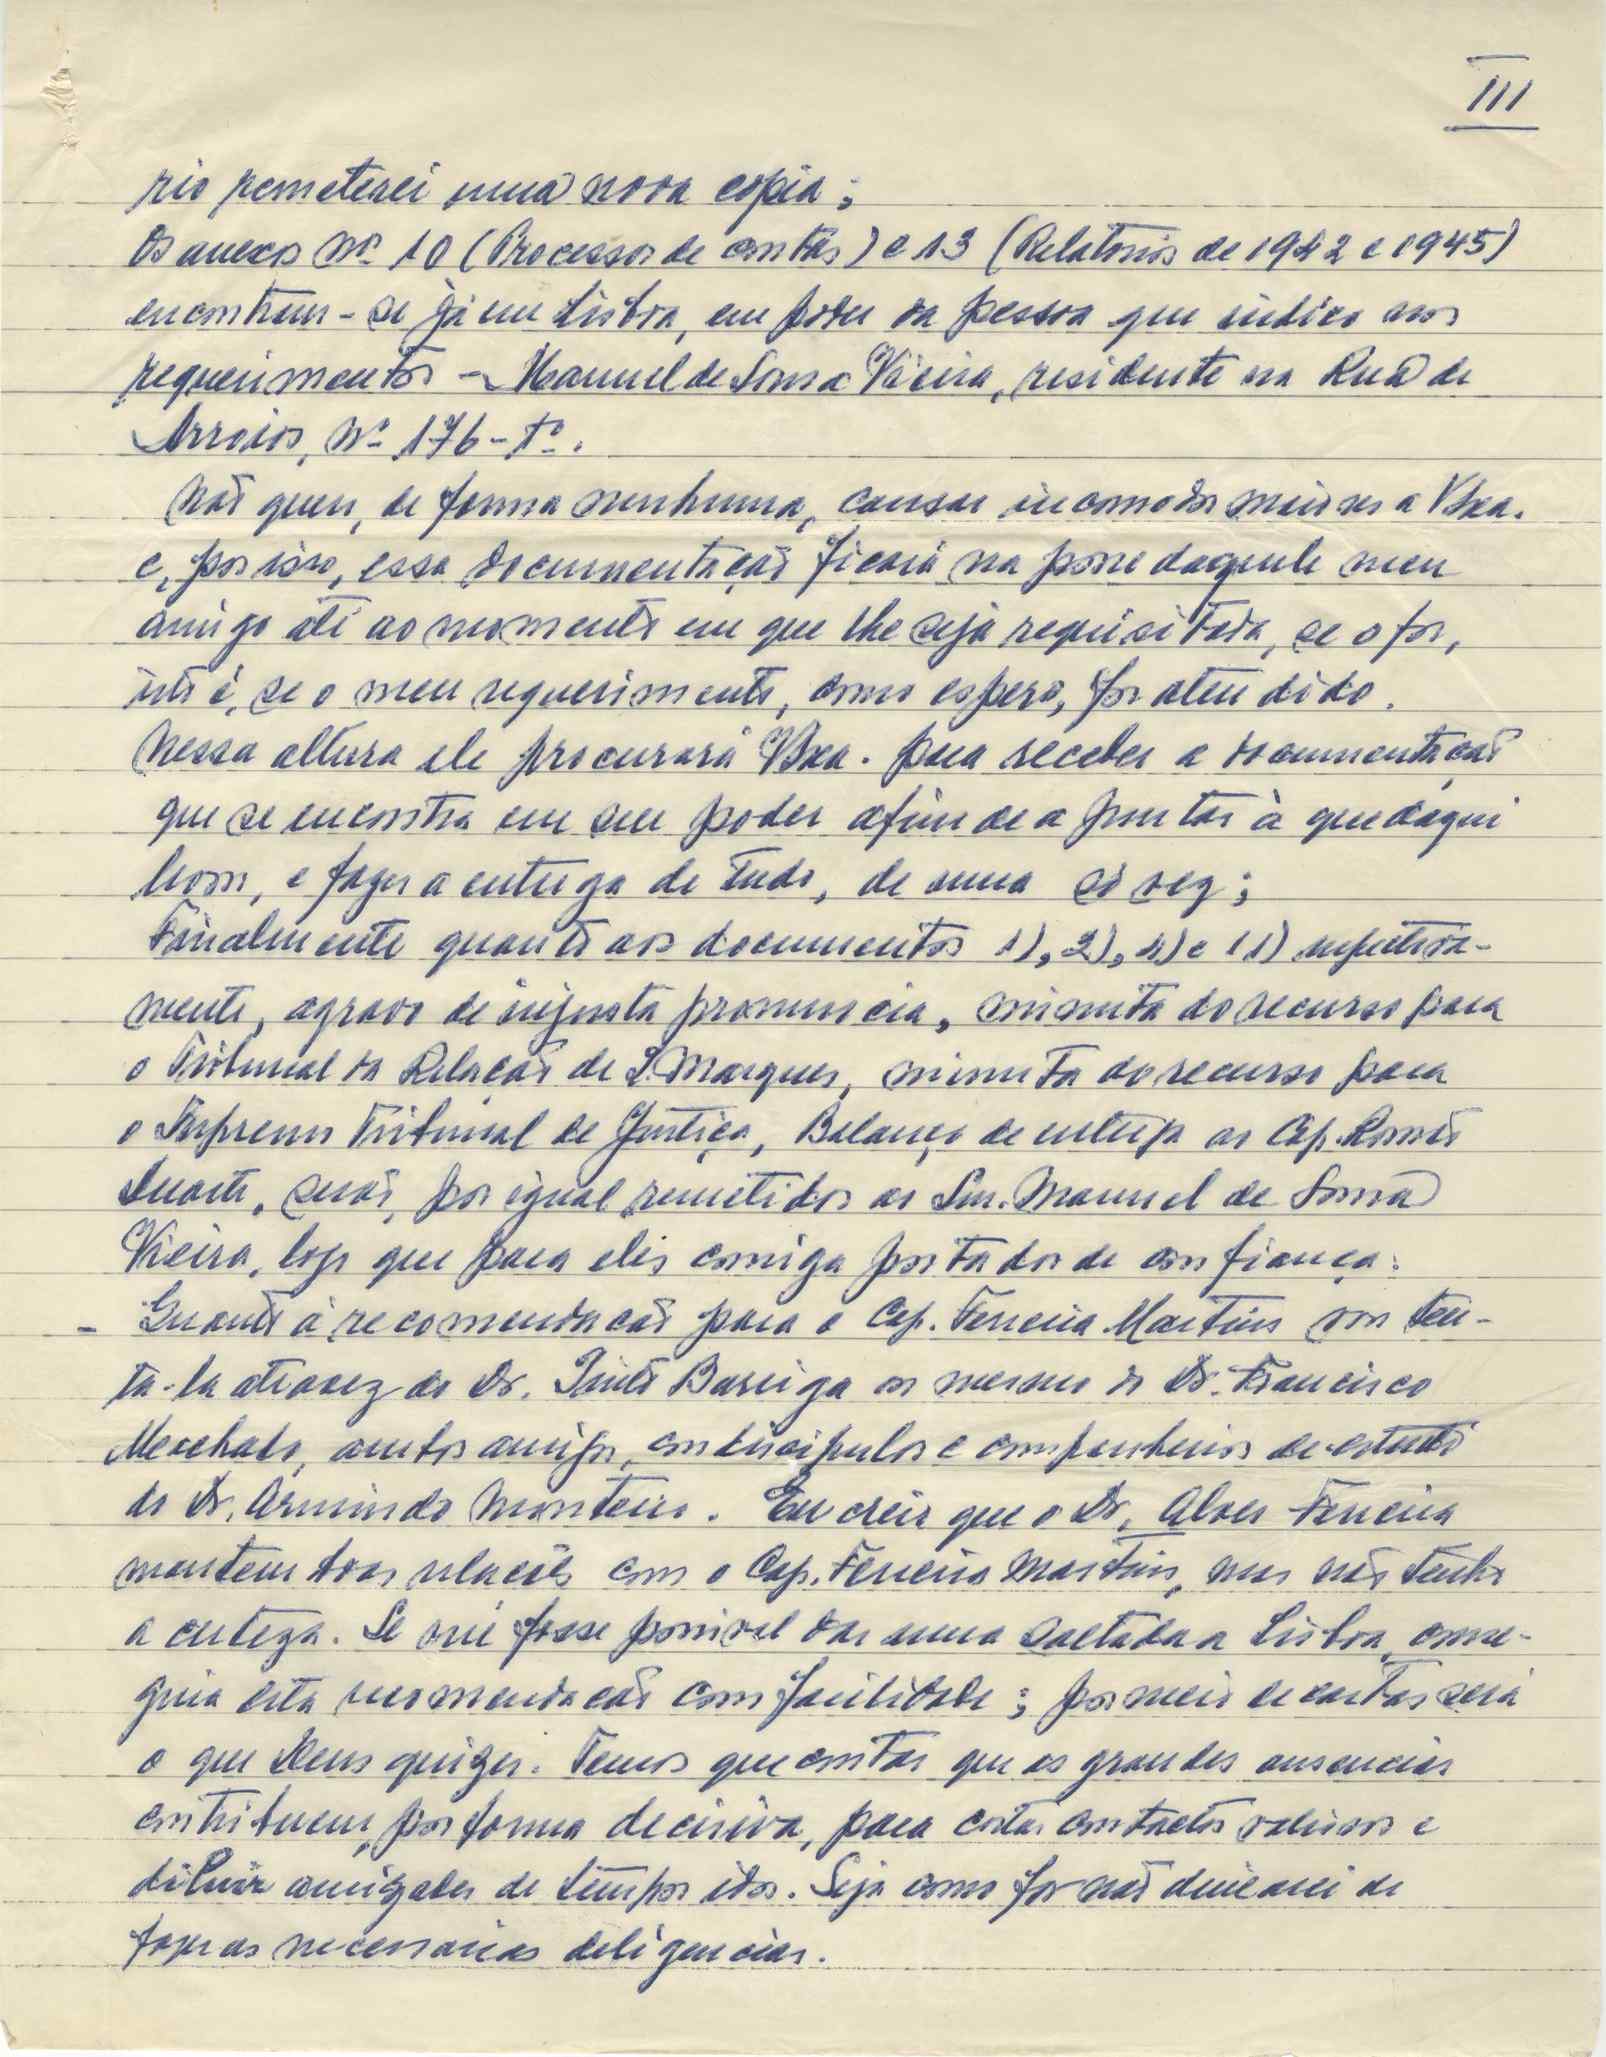 III
rio remeterei uma nova copia;
Os anexos Nº 10 (Processos de contas) e 13 (Relatorios de 1942 e 1945)
encontram-se já em Lisboa, em poder da pessoa que indico nos
requerimentos - Manuel de Sousa Vieira, residente na Rua de
Arroios, Nº 176-1º.
Não quero, de forma nenhuma, causar incomodos maiores a VExa.
e, por isso, essa documentação ficará na posse daquele meu
amigo até ao momento em que lhe seja requisitada, se o for,
isto é, se o meu requerimento, como espero, for atendido.
Nessa altura ele procurará VExa. para receber a documentação
que se encontra em seu poder afim de a juntar à que daqui
levou, e fazer a entrega de tudo, de uma só vez;
Finalmente quanto aos documentos 1), 2), 4) e 11) respectiva-
mente, agravo de injusta pronuncia, minuta do recurso para
o Tribunal da Relação de L. Marques, minuta do recurso para
o Supremo Tribunal de Justiça, Balanço de entrega ao Cap. Romão
Duarte, serão, por igual remetidos ao Snr. Manuel de Sousa
Vieira, logo que para eles consiga portador de confiança.
- Quanto à recomendação para o Cap. Ferreira Martins vou ten-
ta-la atravez do Dr. Pinto Barriga ou mesmo do Dr. Francisco
Machado, ambos amigos, condiscipulos e companheiros de estudo
do Dr. Armindo Monteiro. Eu creio que o Dr. Alves Ferreira
mantem boas relações com o Cap. Ferreira Martins, mas não tenho
a certeza. Se me fosse possivel dar uma saltada a Lisboa, conse-
guia esta recomendação com facilidade; por meio de cartas será
o que Deus quizer. Temos que contar que as grandes ausencias
contribuem, por forma decisiva, para cortar contactos valiosos e
diluir amizades de tempos idos. Seja como for não deixarei de
fazer as necessarias deligencias.